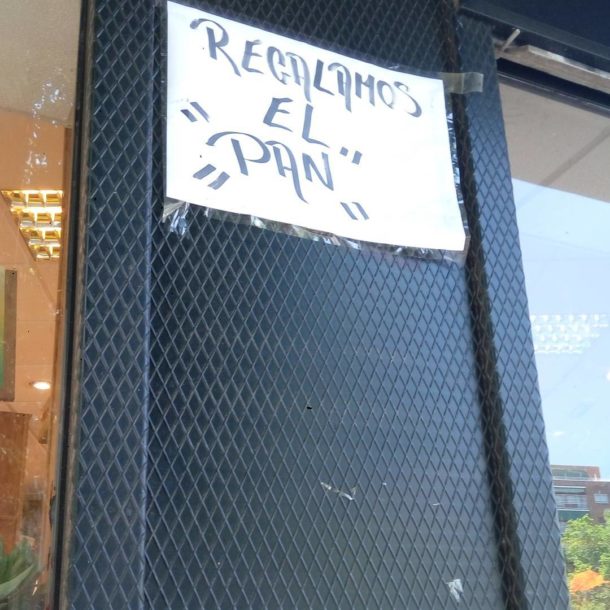 REGALAMOS
EL
"PAN"